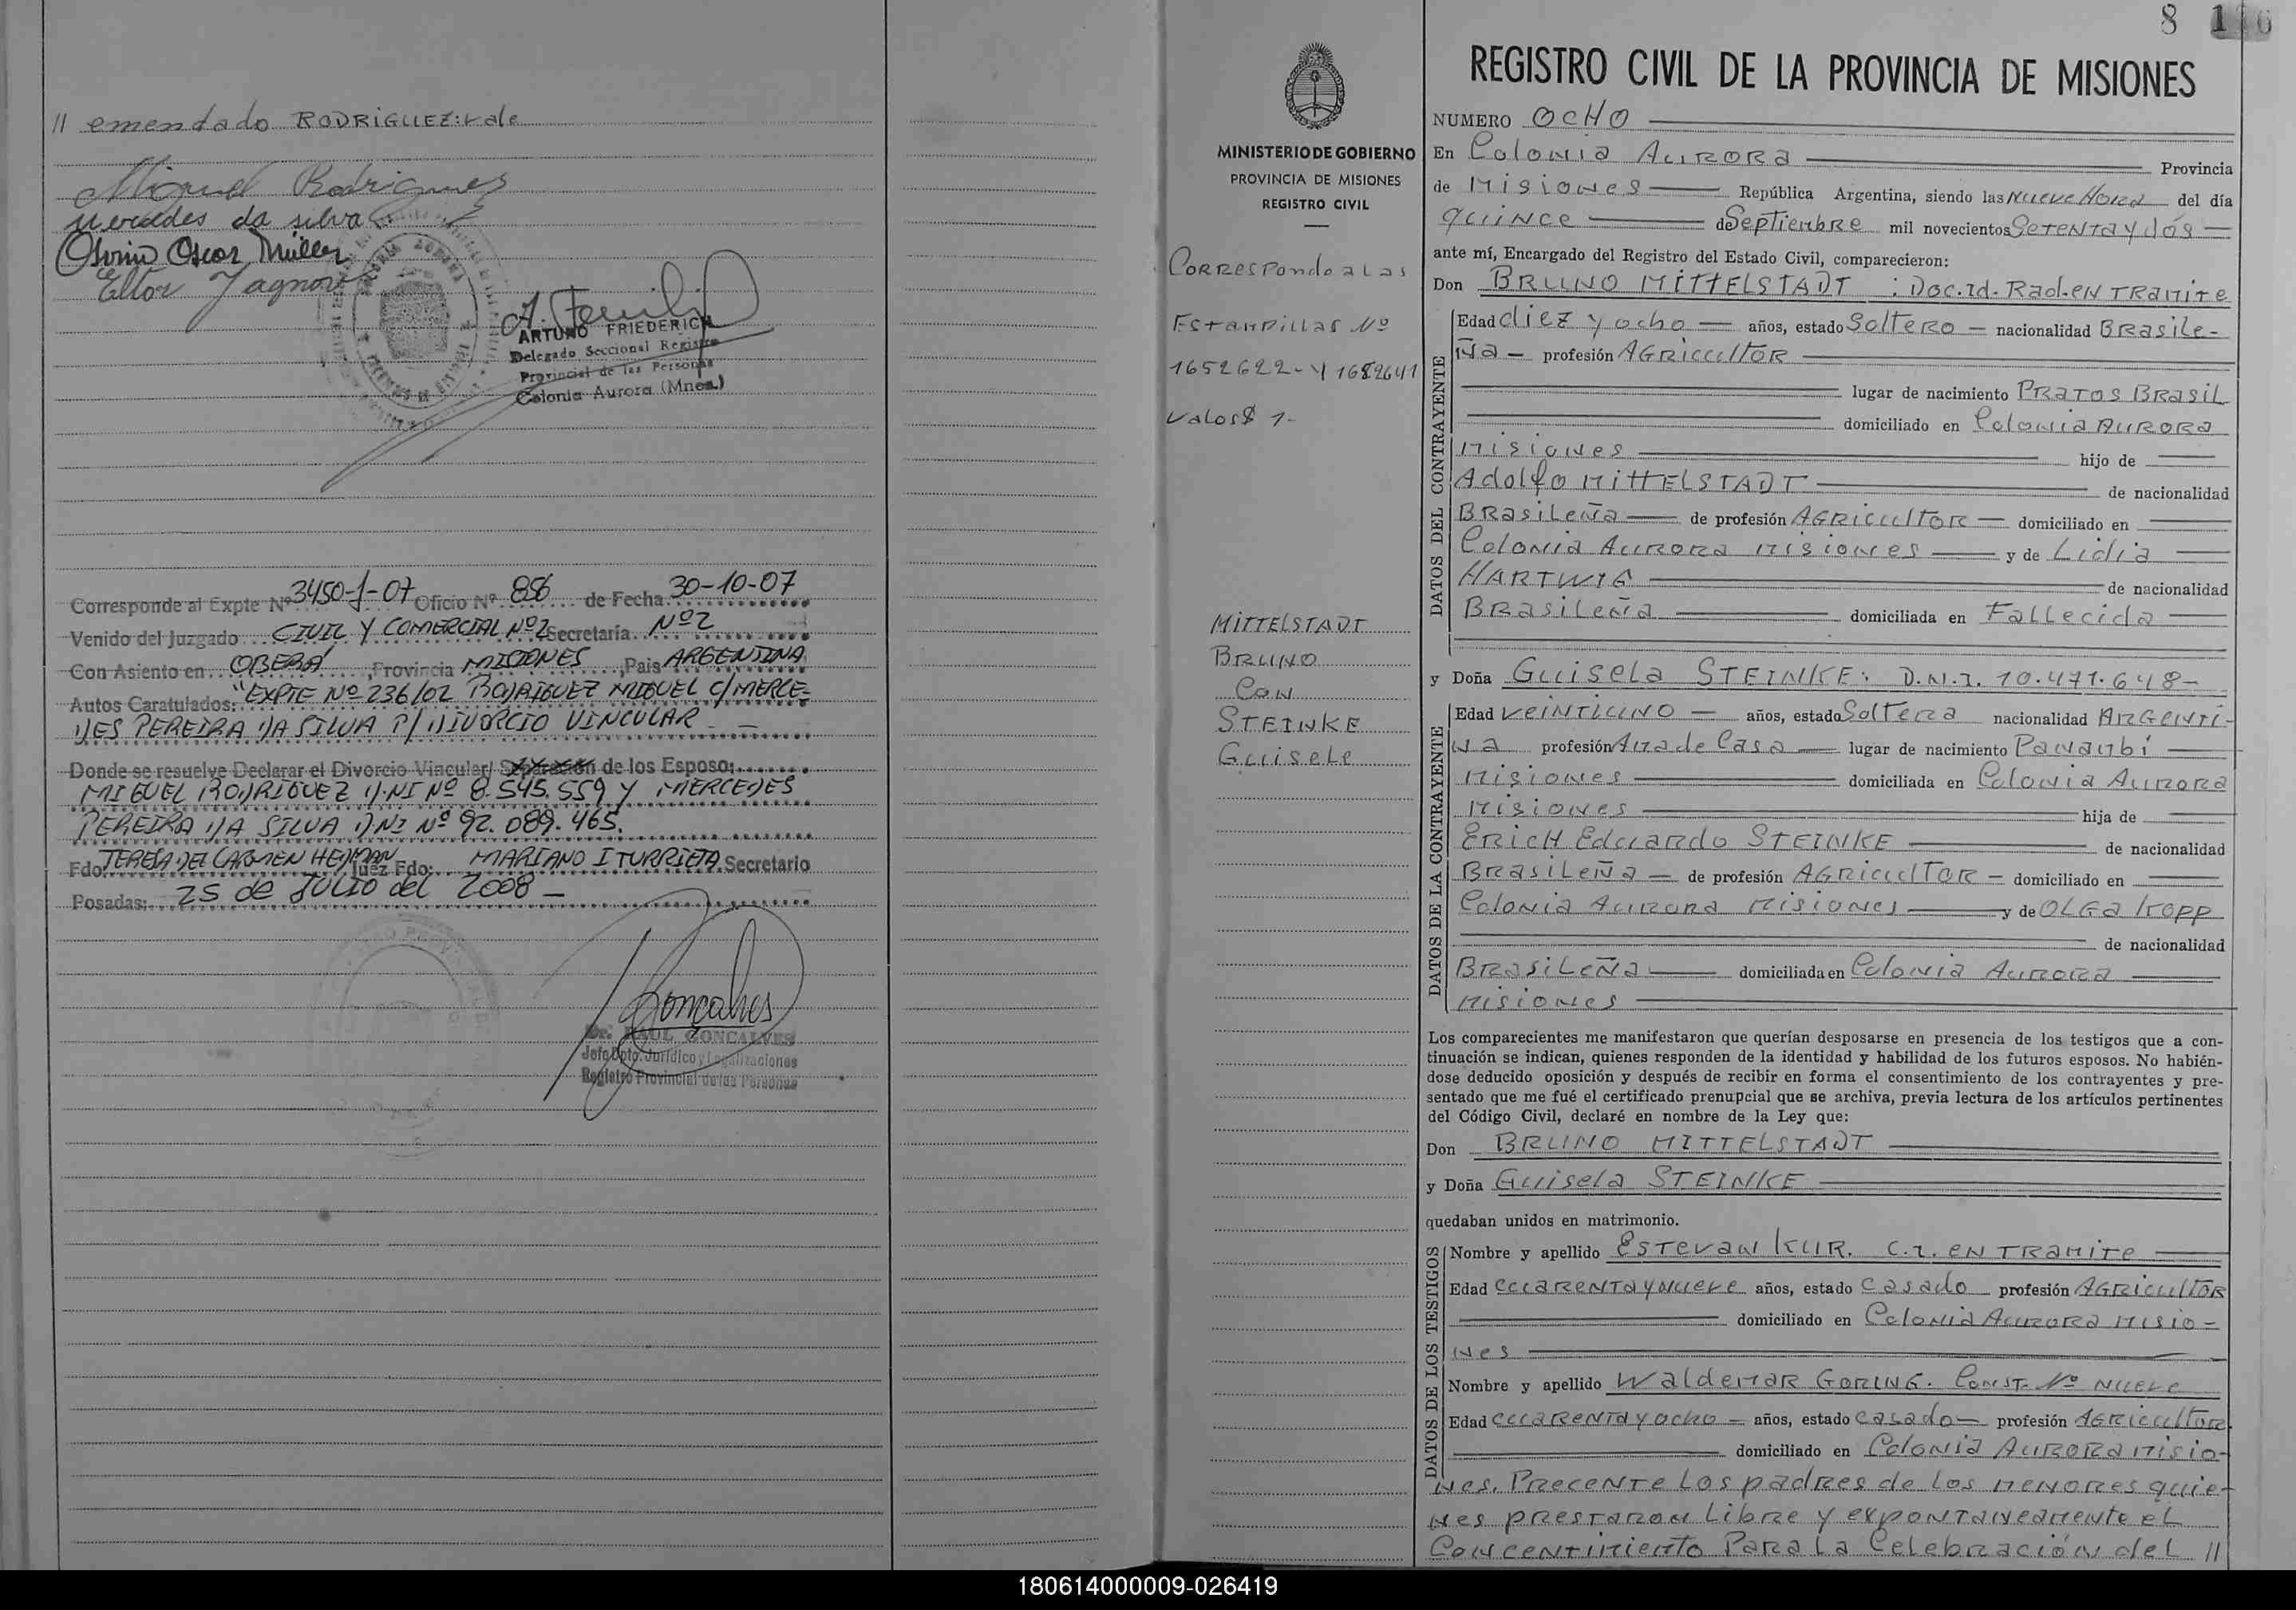 // emendado RODRIGUEZ: vale
Miguel Rodrigues
Mercedes da silva
Olvin Oscar Müller
Eltor Jagnow
ARTURO FRIEDERICH
Delegado Seccional Registro
Provincial de las Personas
Colonia Aurora (Mnes.)
Corresponde al Expte Nº 3450-J-07 Oficio Nº 856 de Fecha 30-10-07
Venido del Juzgado CIVIL Y COMERCIAL Nº2 Secretaría Nº2
Con Asiento en OBERÁ, Provincia MISIONES, Pais ARGENTINA
Autos Caratulados: "EXPTE Nº 236/02 RODRIGUEZ MIGUEL C/ MERCE-
DES PEREIRA DA SILVA P/ DIVORCIO VINCULAR
Donde se resuelve Declarar el Divorcio Vincular/ Separación de los Esposo:
MIGUEL RODRIGUEZ D.NI Nº 8.545.559 Y MERCEDES
PEREIRA DA SILVA DNI Nº 92.089.465.
Fdo: TERESA DEL CARMEN HEDMAN Juez Fdo: MARIANO ITURRIETA Secretario
Posadas: 25 de JULIO del 2008 —
Goncalves
Dr. RAUL GONCALVES
Jefe Dpto. Jurídico y Legalizaciones
Registro Provincial de las Personas
8
MINISTERIO DE GOBIERNO
PROVINCIA DE MISIONES
REGISTRO CIVIL
Corresponde a las
Estampillas Nº
1652622 - y 1682641
Valor $ 1-
MITTELSTADT
BRUNO
Con
STEINKE
Guisele
REGISTRO CIVIL DE LA PROVINCIA DE MISIONES
NUMERO OCHO
En Colonia Aurora Provincia
de Misiones República Argentina, siendo las Nueve Hora del día
quince de Septiembre mil novecientos Setenta y dós
ante mí, Encargado del Registro del Estado Civil, comparecieron:
Don BRUNO MITTELSTADT : Doc.id. Rad. en TRamite
DATOS DEL CONTRAYENTE
Edad diez y ocho años, estado Soltero nacionalidad Brasile-
ña profesión Agricultor
lugar de nacimiento Pratos Brasil
domiciliado en Colonia Aurora
Misiones hijo de
Adolfo MITTELSTADT de nacionalidad
Brasileña de profesión Agricultor domiciliado en
Colonia Aurora Misiones y de Lidia
HARTWIG de nacionalidad
Brasileña domiciliada en Fallecida
y Doña Guisela STEINKE: D.N.I. 10.471.648-
DATOS DE LA CONTRAYENTE
Edad veintiuno años, estado Soltera nacionalidad Argenti-
na profesión Ama de Casa lugar de nacimiento Panambí
Misiones domiciliada en Colonia Aurora
Misiones hija de
Erich Eduardo STEINKE de nacionalidad
Brasileña de profesión Agricultor domiciliado en
Colonia Aurora Misiones y de Olga Kopp
de nacionalidad
Brasileña domiciliada en Colonia Aurora
Misiones
Los comparecientes me manifestaron que querían desposarse en presencia de los testigos que a con-
tinuación se indican, quienes responden de la identidad y habilidad de los futuros esposos. No habién-
dose deducido oposición y después de recibir en forma el consentimiento de los contrayentes y pre-
sentado que me fué el certificado prenupcial que se archiva, previa lectura de los artículos pertinentes
del Código Civil, declaré en nombre de la Ley que:
Don BRUNO MITTELSTADT
y Doña Guisela STEINKE
quedaban unidos en matrimonio.
DATOS DE LOS TESTIGOS
Nombre y apellido Estevan KUR. C.I. en TRamite
Edad cuarenta y nueve años, estado casado profesión Agricultor
domiciliado en Colonia Aurora Misio-
nes
Nombre y apellido Waldemar Goring. Const. Nº nueve
Edad cuarenta y ocho años, estado casado profesión Agricultor
domiciliado en Colonia Aurora Misio-
nes. Precente Los padres de los menores quie-
nes prestaron Libre y expontaneamente el
Concentimiento Para La Celebración del //
180614000009-026419